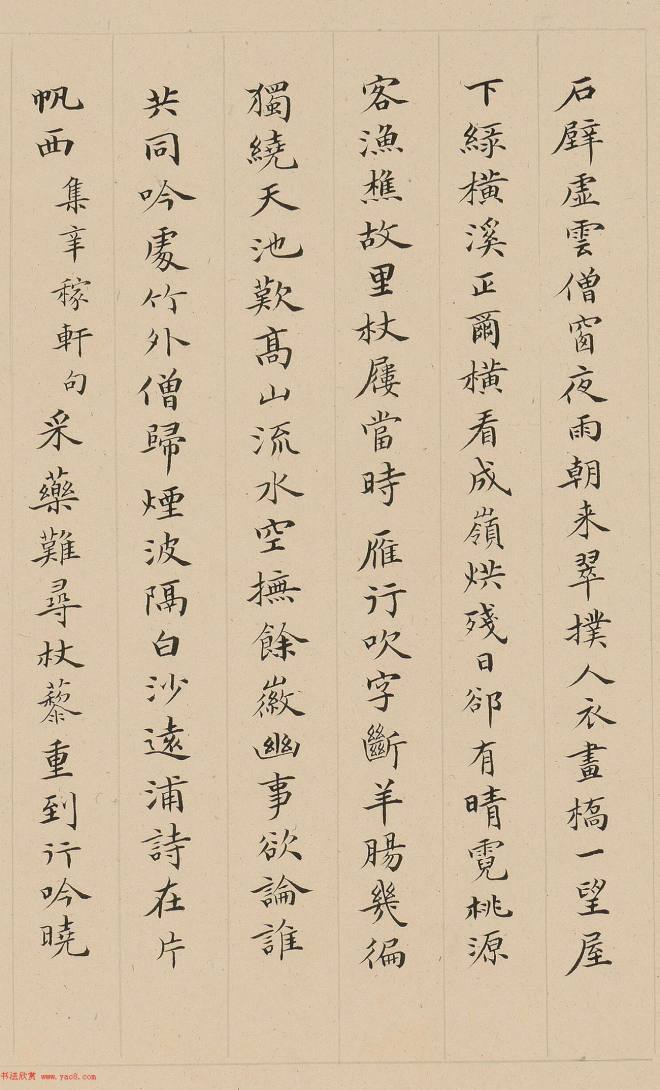 石壁虛雲僧窗夜雨朝来翠撲人衣畫橋一望屋
下綠橫溪正爾橫看成嶺烘殘日卻有晴霓桃源
客漁樵故里杖屨當時雁行吹字斷羊腸幾徧
獨繞天池歎高山流水空撫餘徽幽事欲論誰
共同吟處竹外僧歸煙波隔白沙遠浦詩在片
帆西 集辛稼軒句 采藥難尋杖藜重到行吟曉
书法欣赏 www.yac8.com